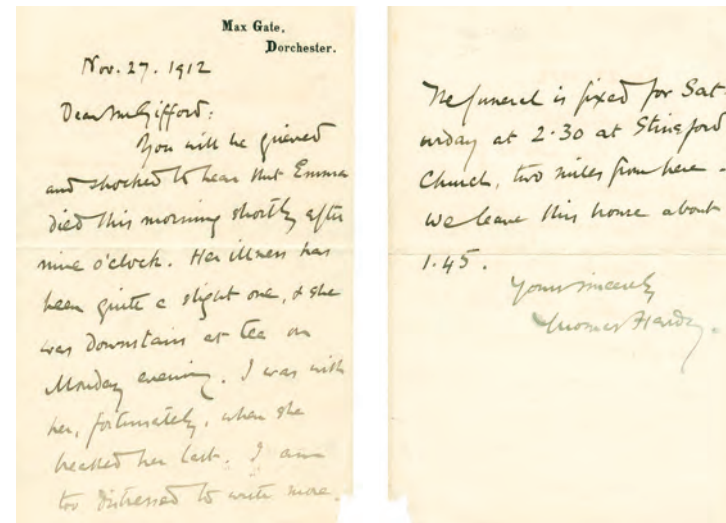 Max Gate,
Dorchester.
Nov. 27. 1912
Dear Mr Gifford:
You will be grieved
and shocked to hear that Emma
died this morning shortly after
nine o'clock. Her illness has
been quite a slight one, & she
was downstairs at tea on
Monday evening. I was with
her, fortunately, when she
breathed her last. I am
too distressed to write more.
The funeral is fixed for Sat-
urday at 2·30 at Stinsford
Church, two miles from here –
we leave this house about
1·45.
Yours sincerely
Thomas Hardy.